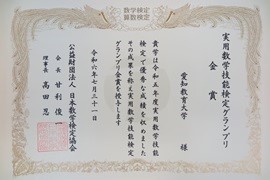 数学検定
算数検定
実用数学技能検定グランプリ
金賞
愛知教育大学 様
貴学は令和五年度実用数学技能
検定で優秀な成績を収めました
その成果を称え実用数学技能検定
グランプリ金賞を授与します
令和六年七月三十一日
公益財団法人 日本数学検定協会
会長 甘利俊一
理事長 高田忍